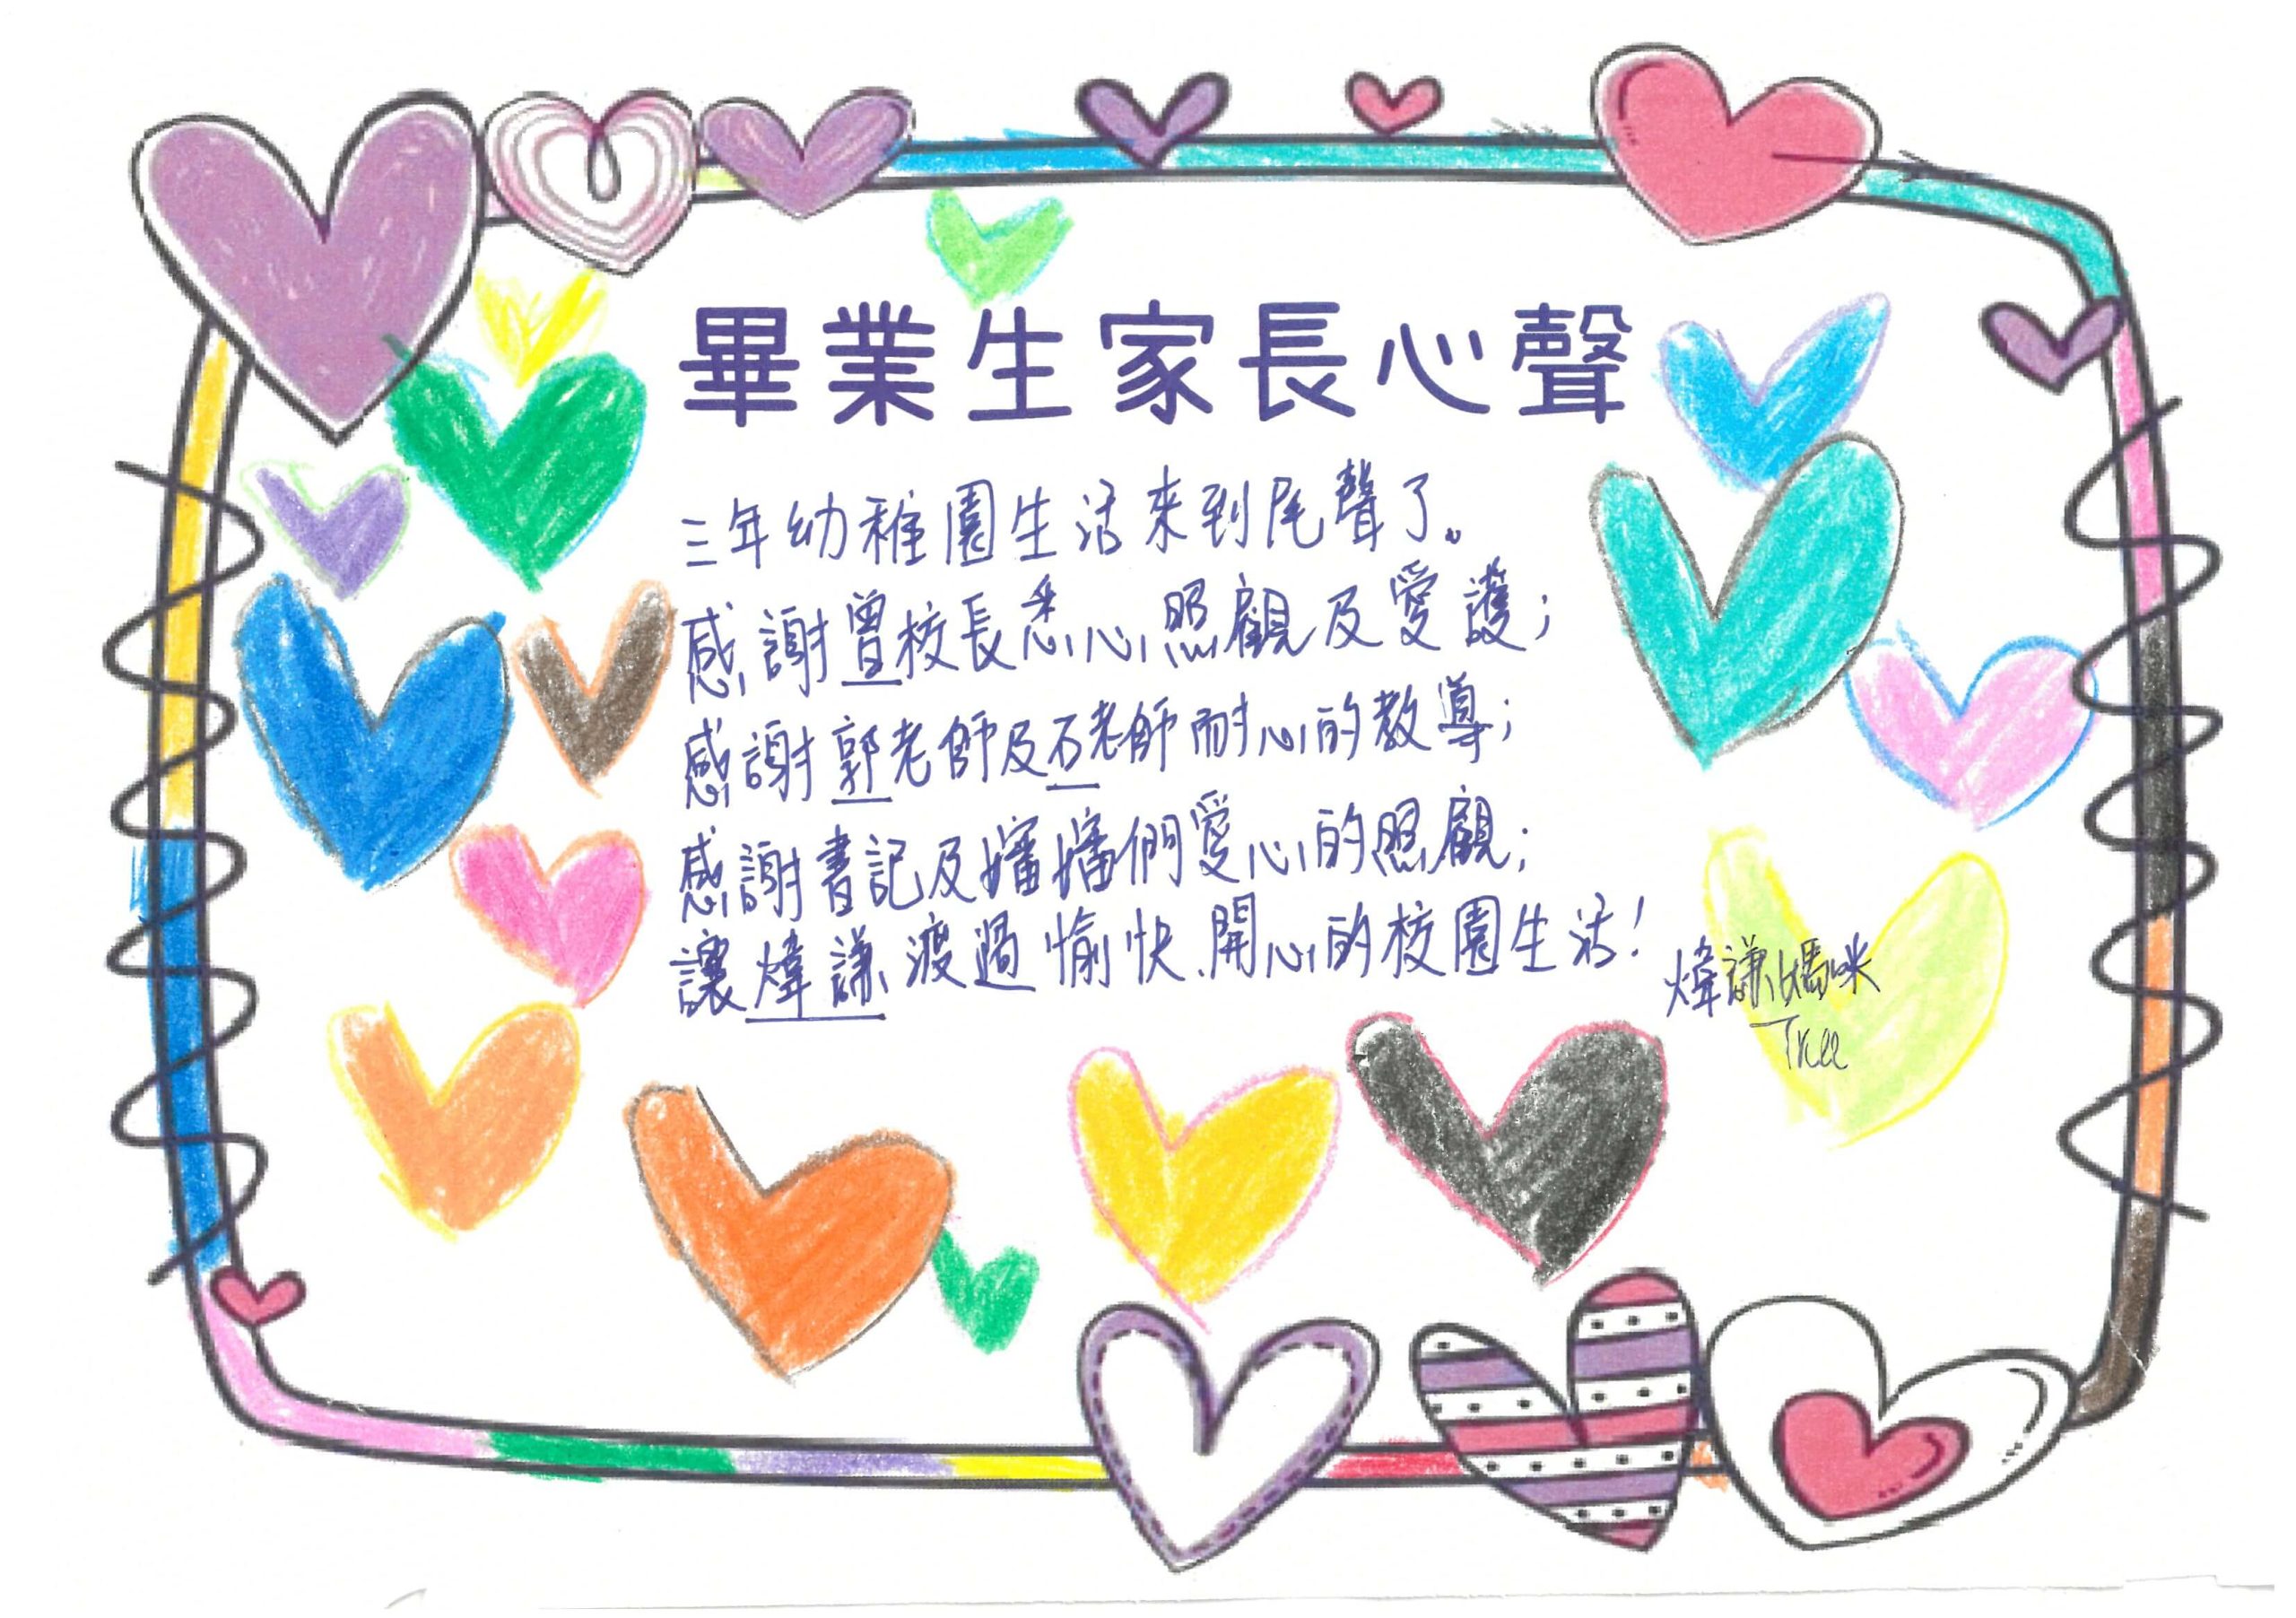 畢業生家長心聲
三年幼稚園生活來到尾聲了。
感謝曾校長悉心照顧及愛護；
感謝郭老師及石老師耐心的教導；
感謝書記及嬸嬸們愛心的照顧；
讓煒謙渡過愉快、開心的校園生活！
煒謙媽咪
Tree